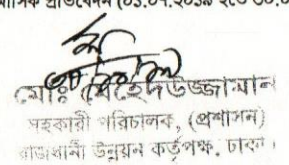 মাসিক প্রতিবেদন (০১.০৭.২০১৯ হতে ৩০.০
মোঃ মেহেদউজ্জামান
সহকারী পরিচালক, (প্রশাসন)
রাজধানী উন্নয়ন কর্তৃপক্ষ, ঢাকা।